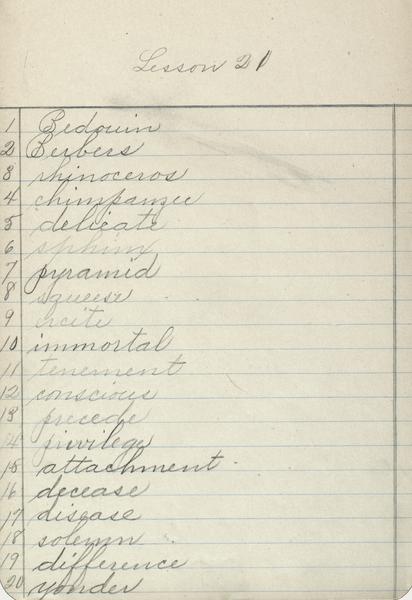 Lesson 21
1 Bedouin
2 Berbers
3 rhinoceros
4 chimpanzee
5 delicate
6 sphinx
7 pyramid
8 squeese
9 incite
10 immortal
11 tenement
12 conscious
13 precede
14 privilege
15 attachment
16 decease
17 disease
18 solemn
19 difference
20 yonder